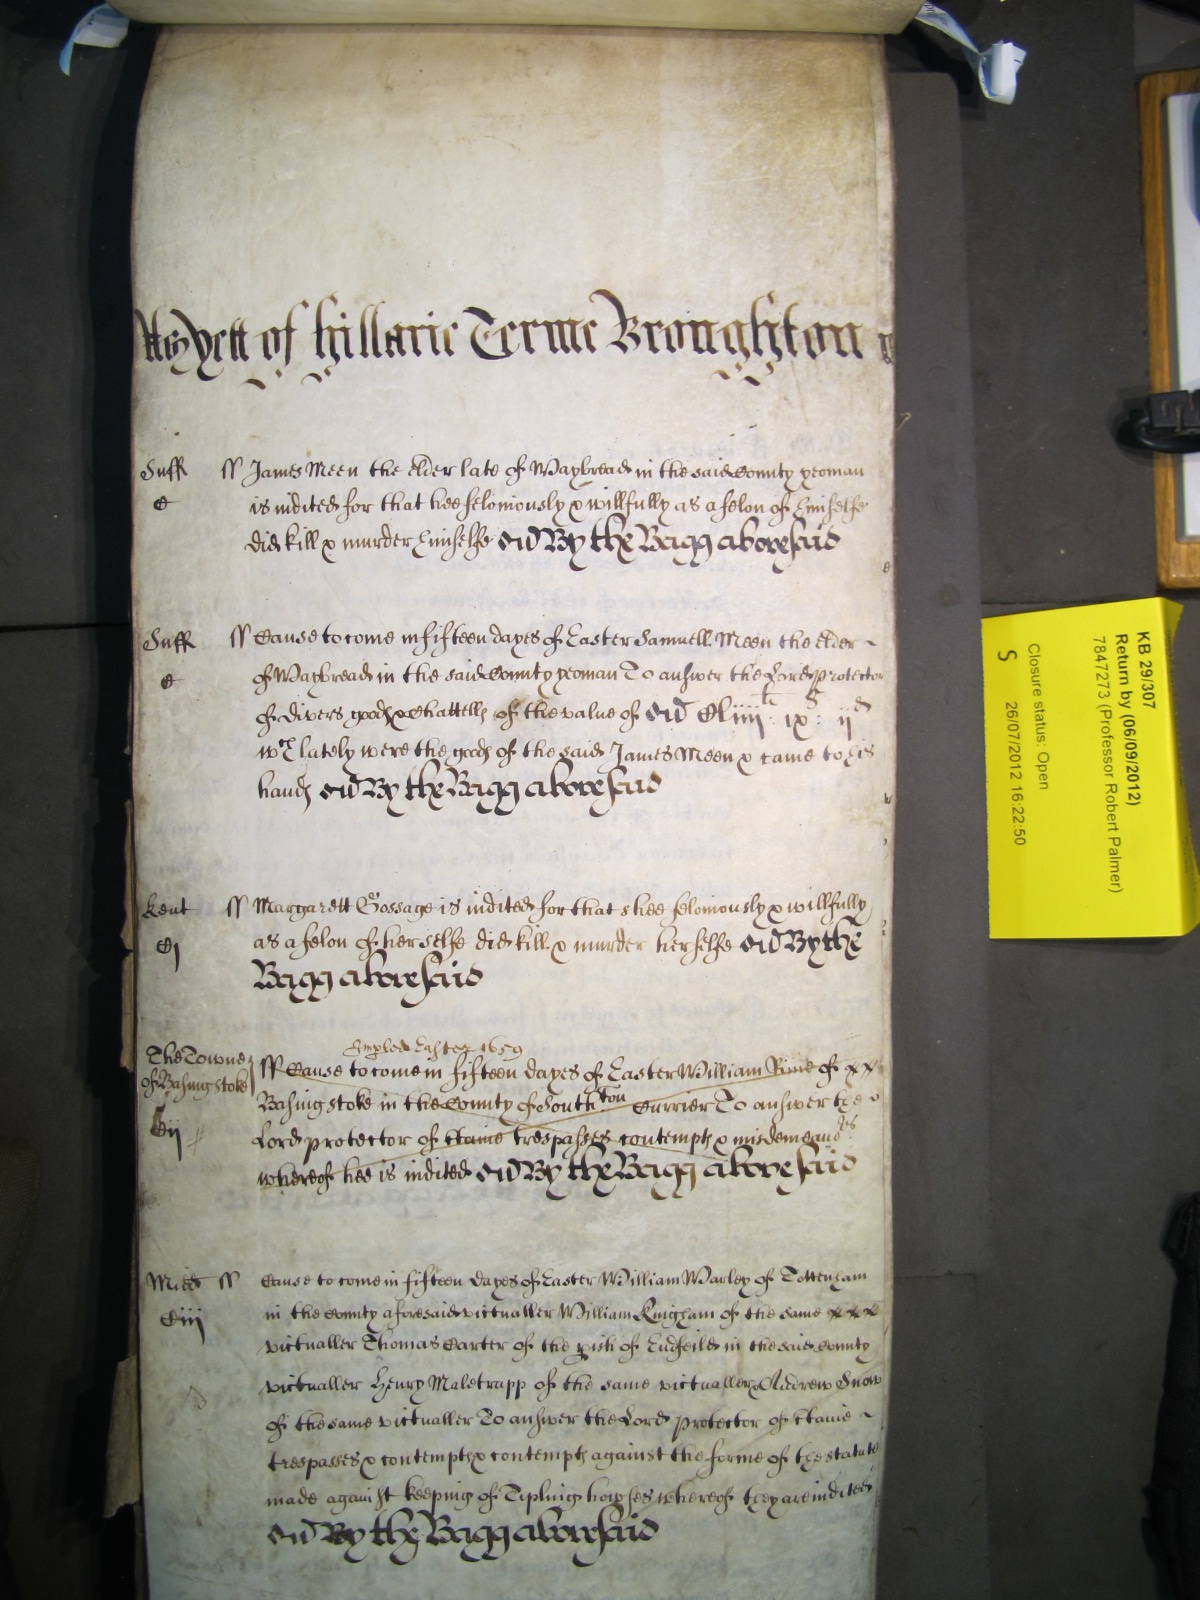 As yett of Hillarie Terme Broughton
Suff ss James Meen the elder late of Waybread in the said County yeoman
C is indited for that hee feloniously & willfully as a felon of himselfe
did kill & murder himselfe By the Bagg abovesaid
Suff ss Cause to come in fifteen dayes of Easter Samuell Meen the elder
C of Waybread in the said County yeoman To answer the Lord protector
of divers goods & Chattells of the value of Cliiij li ix s ij d
wch lately were the goods of the said James Meen & came to his
hands By the Bagg abovesaid
Kent ss Margarett Gossage is indited for that shee feloniously & willfully
Cj as a felon of herselfe did kill & murder herselfe By the
Bagg abovesaid
Easter 1659
The Towne ss Cause to come in fifteen dayes of Easter William Rime of
of Basingstoke Basingstoke in the County of Southton Currier To answer the
Cij Lord protector of trespasses contempts & misdemeanors
whereof hee is indited By the Bagg abovesaid
Midd ss Cause to come in fifteen dayes of Easter William Warley of Tottenham
Ciij in the County aforesaid victualler William Kingham of the same
victualler Thomas Carter of the pish of Endfeild in the said County
victualler Henry Maletrapp of the same victualler & Andrew Snow
of the same victualler To answer the Lord protector of
trespasses & contempts & contempts against the forme of the statute
made against keeping of Tipling howses whereof they are indited
By the Bagg abovesaid
KB 29/307
Return by (06/09/2012)
7847273 (Professor Robert Palmer)
Closure status: Open
S 26/07/2012 16:22:50